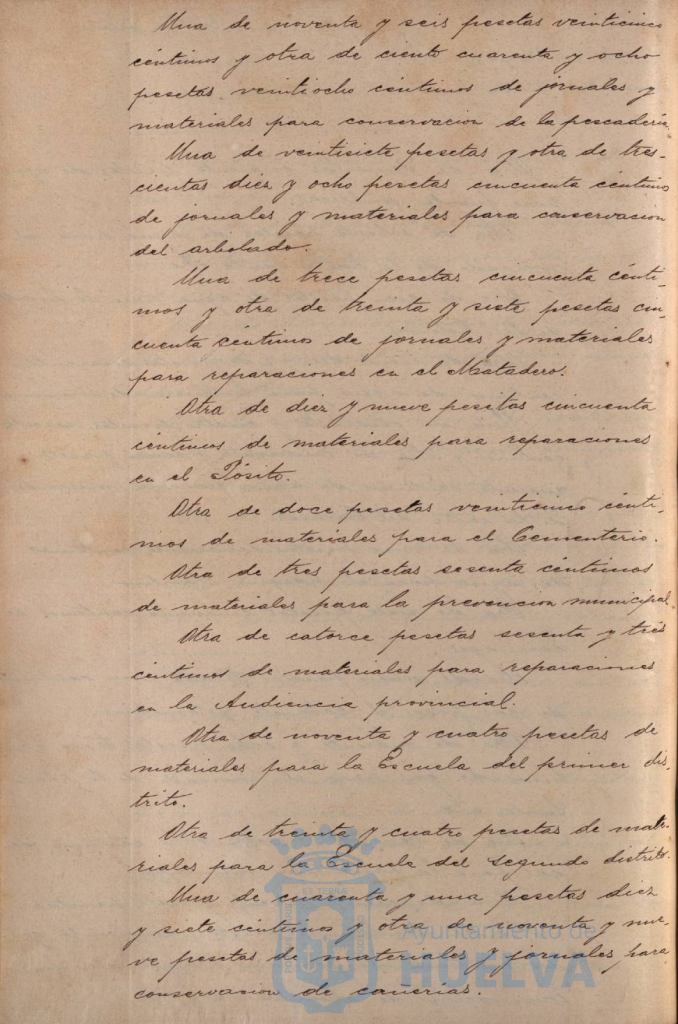 Una de noventa y seis pesetas veinticinco
céntimos y otra de ciento cuarenta y ocho
pesetas veintiocho céntimos de jornales y
materiales para conservacion de la pescadería.
Una de veintisiete pesetas y otra de tres-
cientas diez y ocho pesetas cincuenta céntimos
de jornales y materiales para conservacion
del arbolado.
Una de trece pesetas cincuenta cénti-
mos y otra de treinta y siete pesetas cin-
cuenta céntimos de jornales y materiales
para reparaciones en el Matadero.
Otra de diez y nueve pesetas cincuenta
céntimos de materiales para reparaciones
en el Pósito.
Otra de doce pesetas veinticinco cénti-
mos de materiales para el Cementerio.
Otra de tres pesetas sesenta céntimos
de materiales para la prevencion municipal.
Otra de catorce pesetas sesenta y tres
céntimos de materiales para reparaciones
en la Audiencia provincial.
Otra de noventa y cuatro pesetas de
materiales para la Escuela del primer dis-
trito.
Otra de treinta y cuatro pesetas de mate-
riales para la Escuela del segundo distrito.
Una de cuarenta y una pesetas diez
y siete céntimos y otra de noventa y nue-
ve pesetas de materiales y jornales para
conservacion de cañerías.
Ayuntamiento de
HUELVA